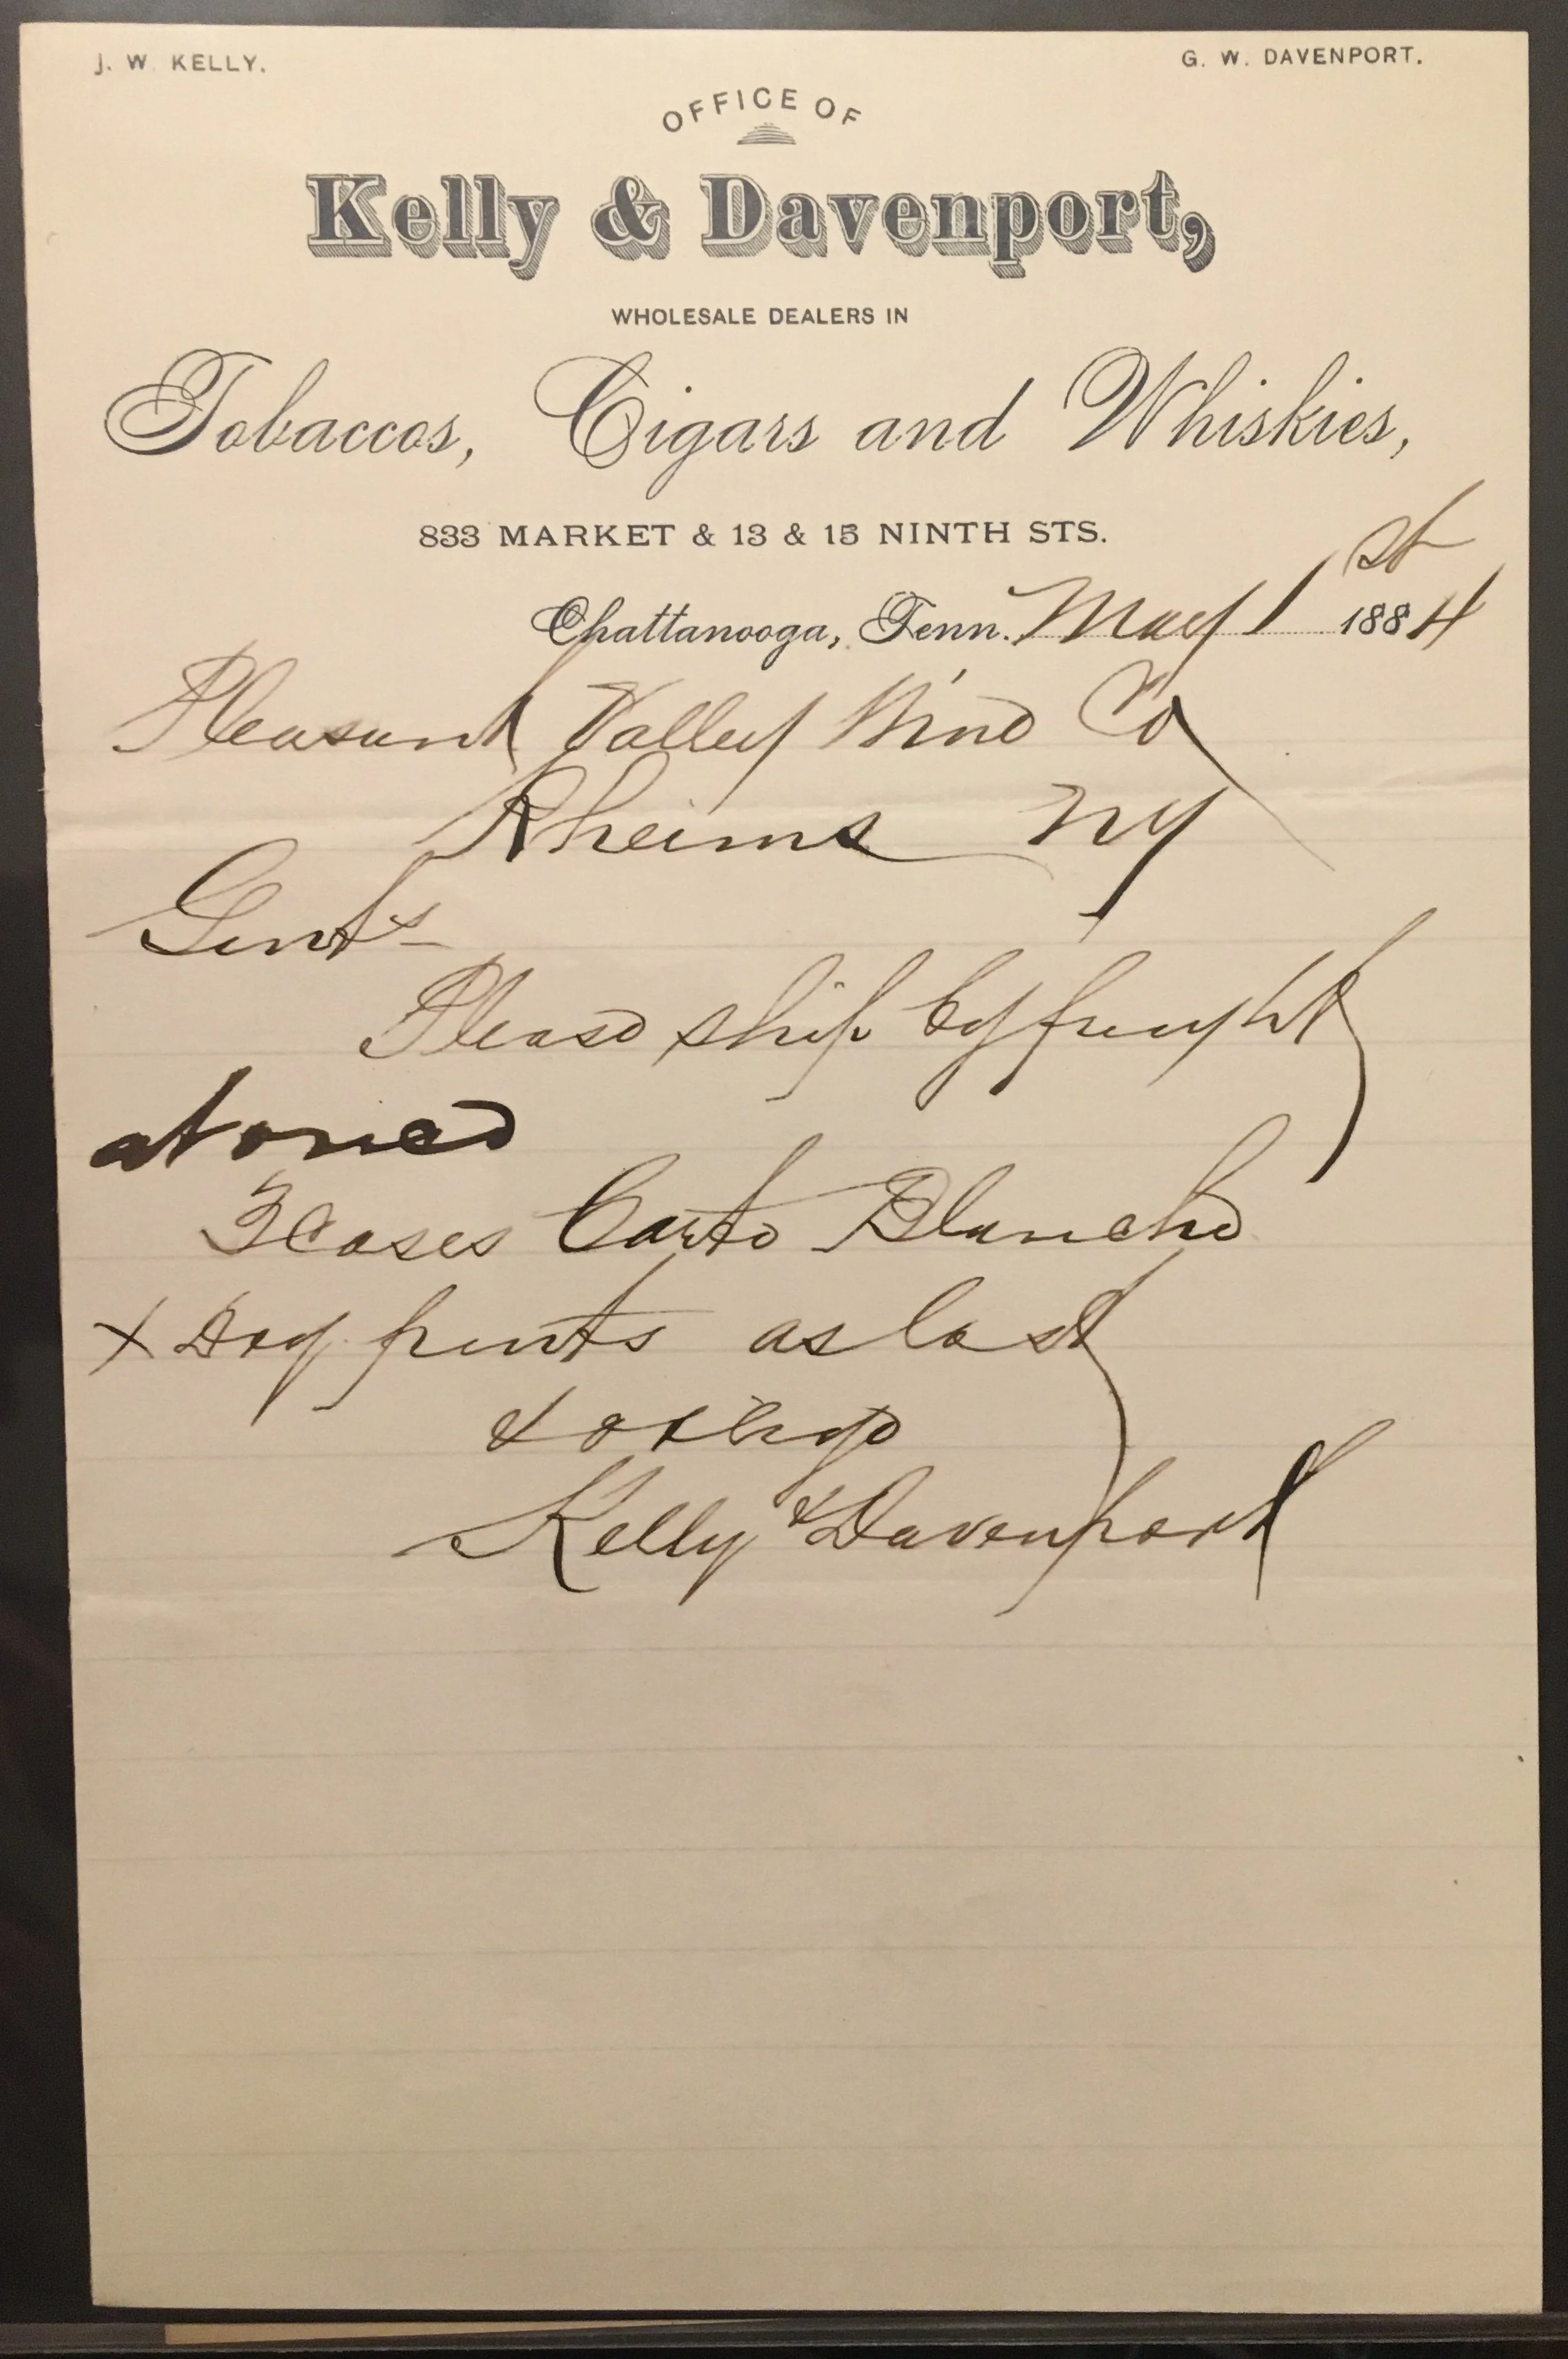 J. W. KELLY.
G. W. DAVENPORT.
OFFICE OF
Kelly & Davenport,
WHOLESALE DEALERS IN
Tobaccos, Cigars and Whiskies,
833 MARKET & 13 & 15 NINTH STS.
Chattanooga, Tenn. May 1st 1884
Pleasant Valley Wine Co
Rheims NY
Gents
Please ship by freight
at once
3 cases Carte Blanche
pints as last
& oblige
Kelly & Davenport